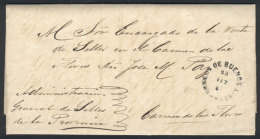 M. Sor Encargado de la Venta
de Sellos en el Carmen de las
Flores Dn José M.
DE BUENOS A
23
Administracion
General de Sellos
de la Provincia
Carmen de las Flores